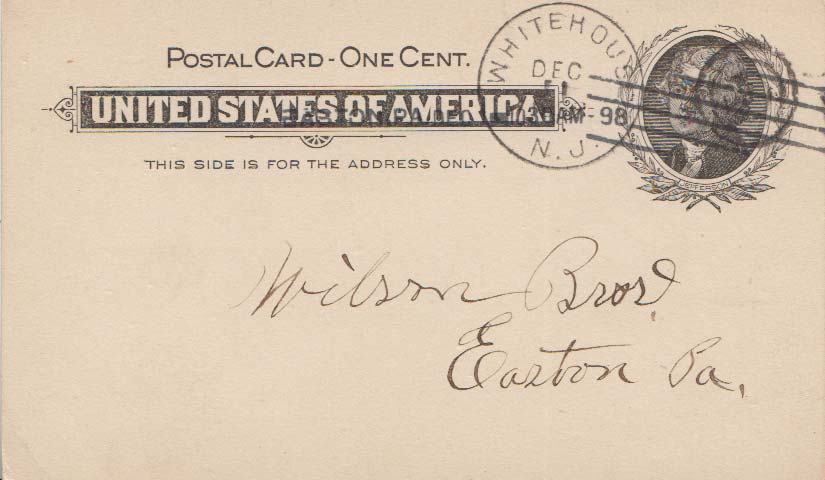 POSTAL CARD - ONE CENT.
UNITED STATES OF AMERICA.
EASTON, PA. DEC 11030AM-98
WHITEHOUSE
DEC
N. J.
JEFFERSON
THIS SIDE IS FOR THE ADDRESS ONLY.
Wilson Bros
Easton Pa.